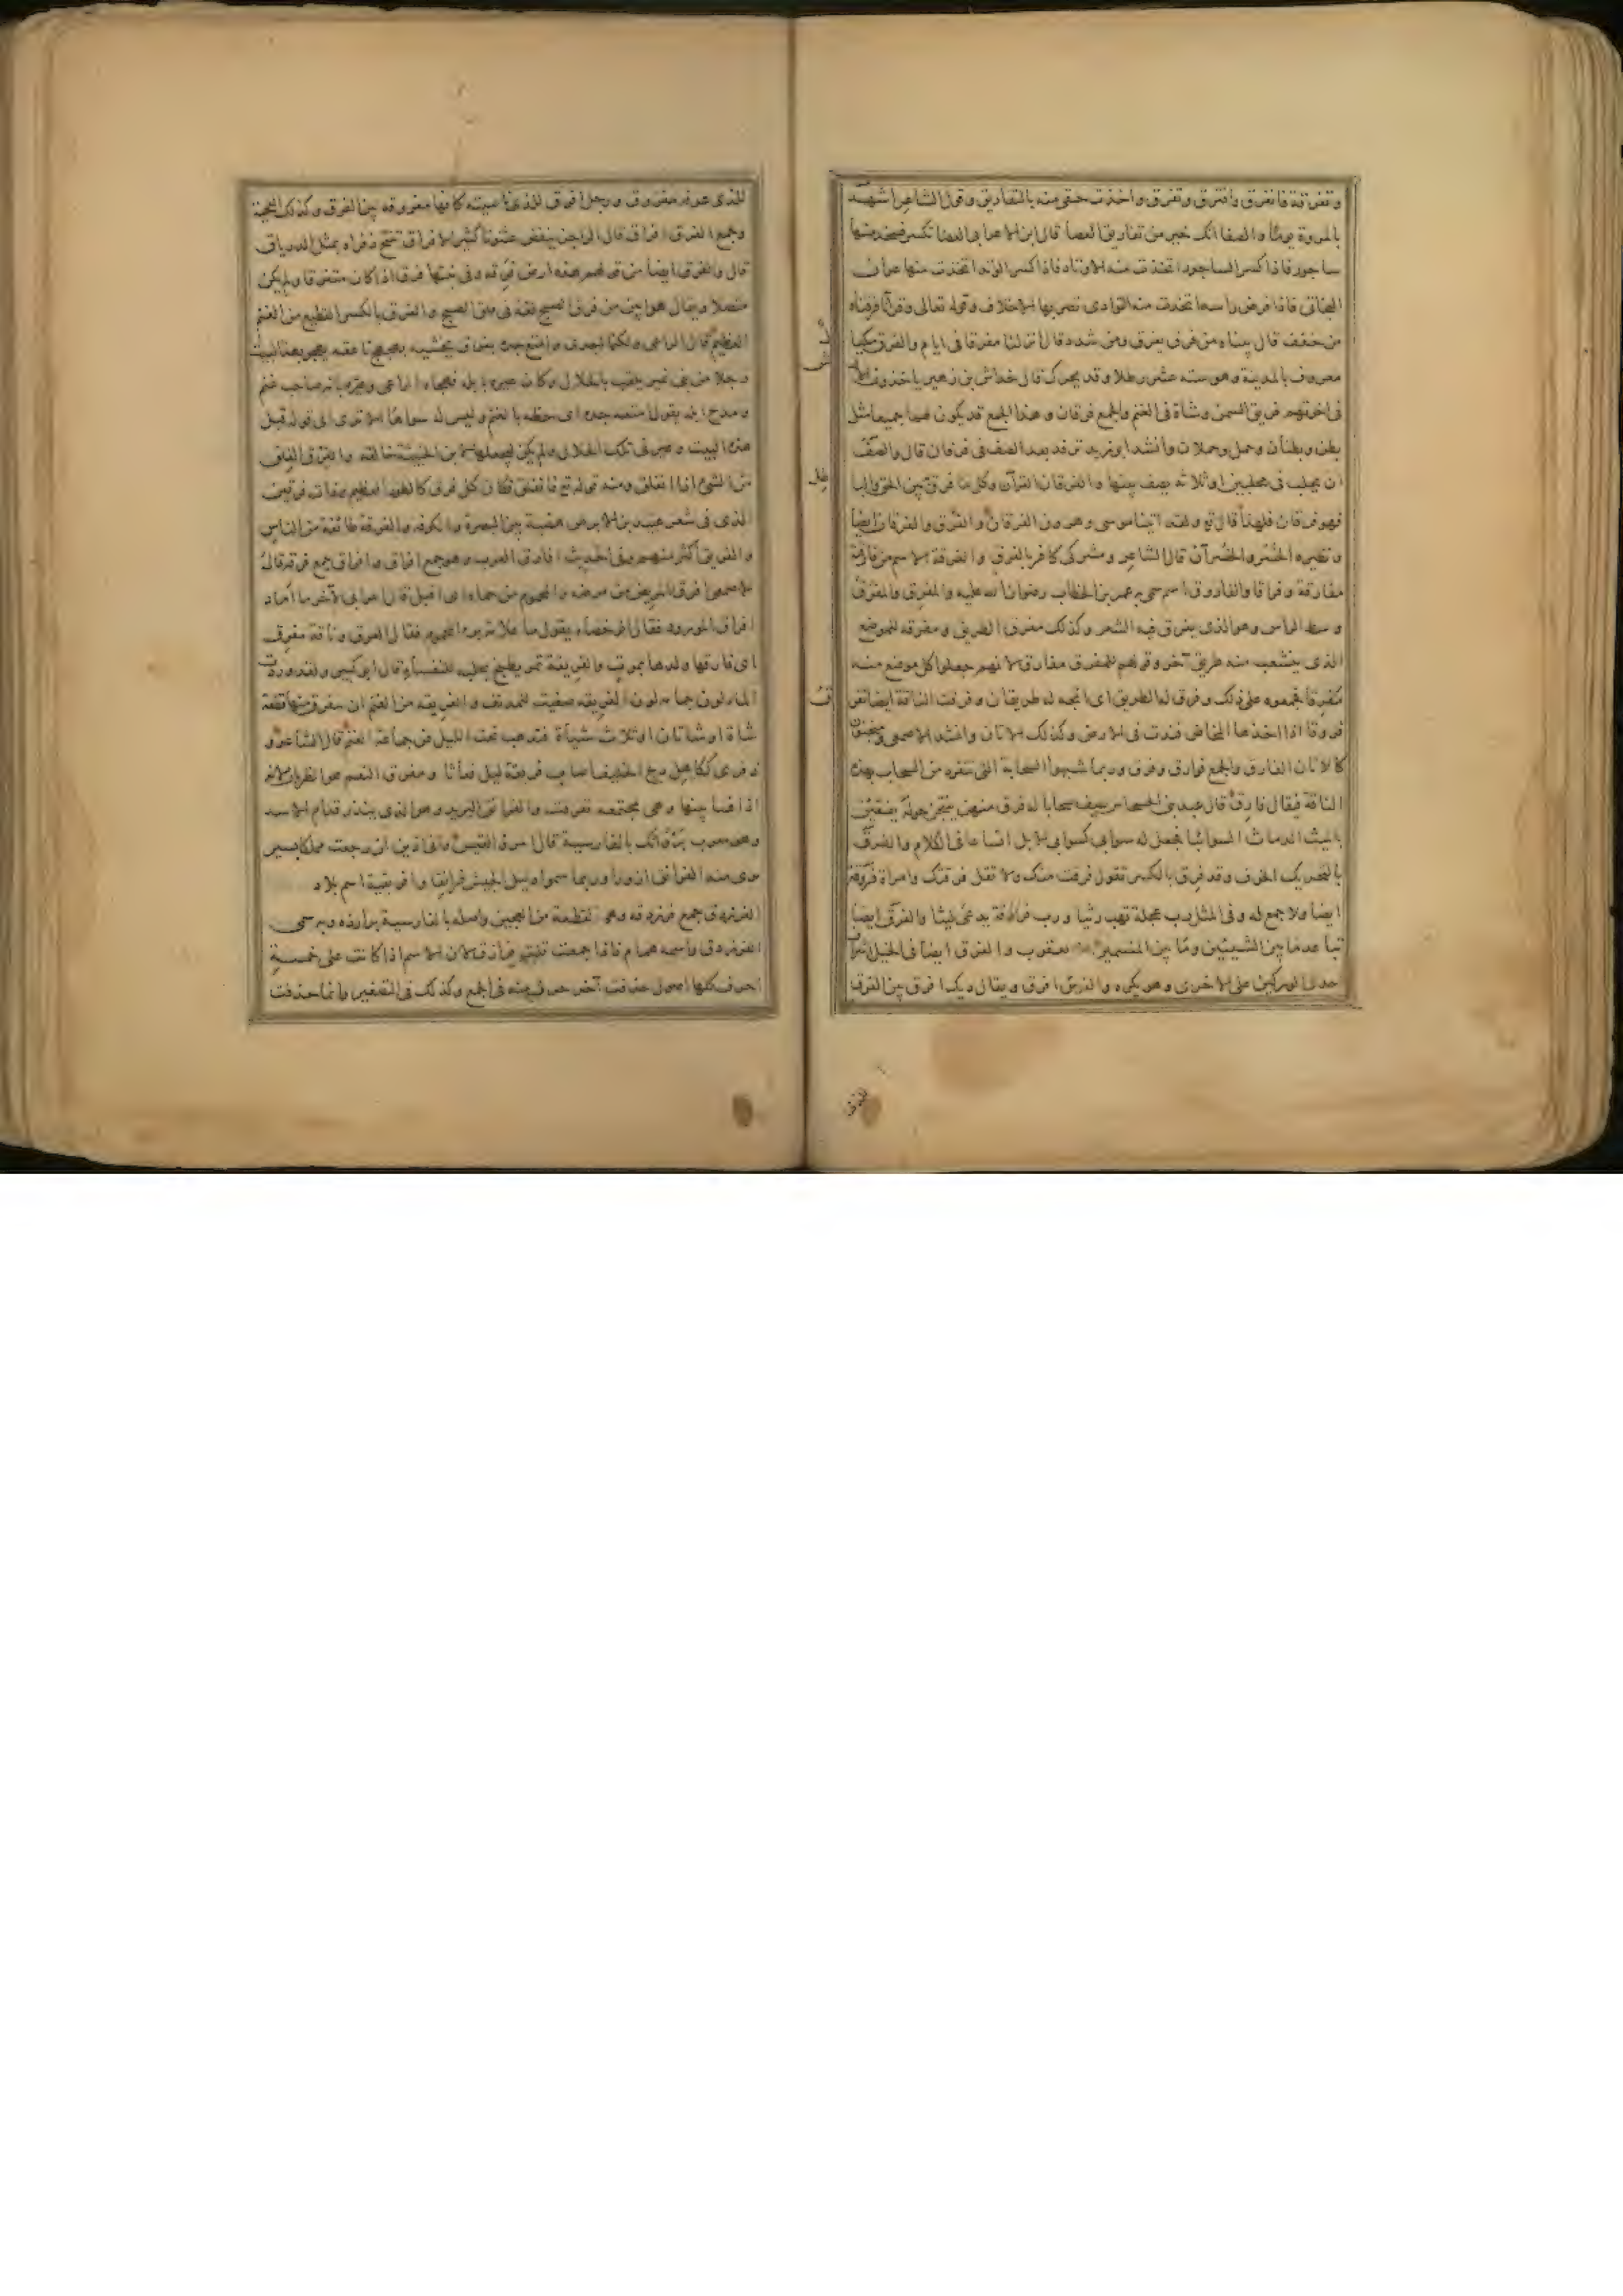 وتفرقة فانفرق وافترق وتفرق واخذت حقى منه بالتفاريق وقول الشاعر اشهد
بالمروة يوما والصفا انك خير من تفاريق العصا قال ابن الاعرابى العصا تكسر فيتخذ منها
ساجور فاذا كسر الساجور اتخذت منه الاوتاد فاذا كسر الوتد اتخذت منها عران
البخاتى فاذا فرض راسها تخذت منه التوادى تصر بها الاخلاف وقوله تعالى وقرآنا فرقناه
من خفف قال بيناه من فرق يفرق ومن شدد قال انزلنا مفرقا فى ايام والفرق مكيال
معروف بالمدينة وهو ستة عشر رطلا وقد يحرك قال خداش بن زهير ياخذون
فى اخرتهم فريق السمن وشاة فى الغنم والجمع فرقان وهذا الجمع قد يكون لهما جميعا مثل
بطن وبطنان وحمل وحملان وانشد ابو زيد ترفد بعد الصف فى فرقان قال والصف
ان يحلب فى محلبين او ثلاثه يصف بينها والفرقان القرآن وكل ما فرق بين الحق والبا
فهو فرقان فلهذا قال تع ولقد اتينا موسى وهرون الفرقان والفرق والفرقان ايضا
ونظيره الخسر والخسران قال الشاعر ومشركى كافر بالفرق والفرقة الاسم من فارقته
مفارقة وفراقا والفاروق اسم سمى به عمر بن الخطاب رضوان الله عليه والمفرق والمفرق
وسط الراس وهو الذى يفرق فيه الشعر وكذلك مفرق الطريق ومفرقه للموضع
الذى ينشعب منه طريق آخر وقولهم للمفرق مفارق لانهم جعلوا كل موضع منه
مفرقا فجمعوه على ذلك وفرق له الطريق اى اتجه له طريقان وفرقت الناقة ايضا تفرق
فروقا اذا اخذها المخاض فندت فى الارض وكذلك الاتان وانشد الاصمعى ومنجنون
كالاتان الفارق والجمع فوارق وفرق وربما شبهوا السحابة التى تنفرد من السحاب بهذه
الناقة فيقال فارق قال عبد بنى الحسحاس يصف سحابا له فرق منهن ينتجن حوله يفقئن
بالميث الدماث السوابيا فجعل له سوابى كسوابى الابل اتساعا فى الكلام والفرق
بالتحريك الخوف وقد فرق بالكسر تقول فرقت منك ولا تقل فرقتك وامراة فروقة
ايضا ولا جمع له وفى المثل رب عجلة تهب ريثا ورب فروقة يدعى ليثا والفرق ايضا
تباعد ما بين الشيئين وما بين المنسمين عن يعقوب والفرق ايضا فى الخيل اشراف
احدى الوركين على الاخرى وهو يكره والفرس افرق ويقال ديك افرق بين الفرق
للذى عرفه مفروق ورجل افرق للذى ناصيته كانها مفروقه بين الفرق وكذلك اللحية
وجمع الفرق افراق قال الراجز ينفض عثنونا كثير الافراق تنتح ذفراه بمثل الدرياق
قال والفرق ايضا من قولهم هذه ارض فرقه وفى نبتها فرق اذا كان متفرقا ولم يكن
متصلا ويقال هو ابين من فرق الصبح لغة فى فلق الصبح والفرق بالكسر القطيع من الغنم
العظيم قال الراعى ولكنما اجدى وامتع جده بفرق يخشيه بهجهج ناعقه يهجو بهذا البيت
رجلا من بنى نمير يلقب بالحلال وكان عيره بابله فهجاه الراعى وعيره بانه صاحب غنم
ومدح ابله يقول امتعه جده اى حظه بالغنم وليس له سواها الا ترى الى قوله قبل
هذا البيت وعيرنى تلك الحلال ولم يكن ليجعلها لابن الخبيثة خالقه والفرق الفلق
من الشئ اذا انفلق ومنه قوله تع فانفلق فكان كل فرق كالطود العظيم وذات فرقين
الذى فى شعر عبيد بن الابرص هضبة بين البصرة والكوفه والفرقة طائفة من الناس
والفريق اكثر منهم وفى الحديث افاريق العرب وهو جمع افراق وافراق جمع فرقة قال
الاصمعى افرق المريض من مرضه والمحموم من حماه اى اقبل قال اعرابى لآخر ما امار
افراق المورود فقال الرحضاء يقول ما علامة برء المحموم فقال العرق وناقة مفرق
اى فارقها ولدها بموت والفريقة تمر يطبخ بحلبه للنفساء قال ابو كبير ولقد وردت
الماء لون جمامه لون الفريقه صفيت للمدنف والفريقه من الغنم ان يتفرق منها قطعة
شاة او شاتان او ثلاث شياة فتذهب تحت الليل عن جماعة الغنم قال الشاعر و
ذفرى ككاهل ذيخ الخليف اصاب فريقة ليل فعاثا ومفرق النعم هو الظربان لانه
اذا فسا بينها وهى مجتمعه تفرقت والفرانق البريد وهو الذى ينذر قدام الاسد
وهو معرب پروانك بالفارسية قال امرؤ القيس وانى اذين ان رجعت مملكا بسير
ترى منه الفرانق ازورا وربما سموا دليل الجيش فرانقا وافريقية اسم بلاد
الفرزدق جمع فرزدقه وهى القطعة من العجين واصله بالفارسية برازده وبه سمى
الفرزدق واسمه همام فاذا جمعت قلت فرازق لان الاسم اذا كانت على خمسة
احرف كلها اصول حذفت آخر حرف منه فى الجمع وكذلك فى التصغير وانما حذفت